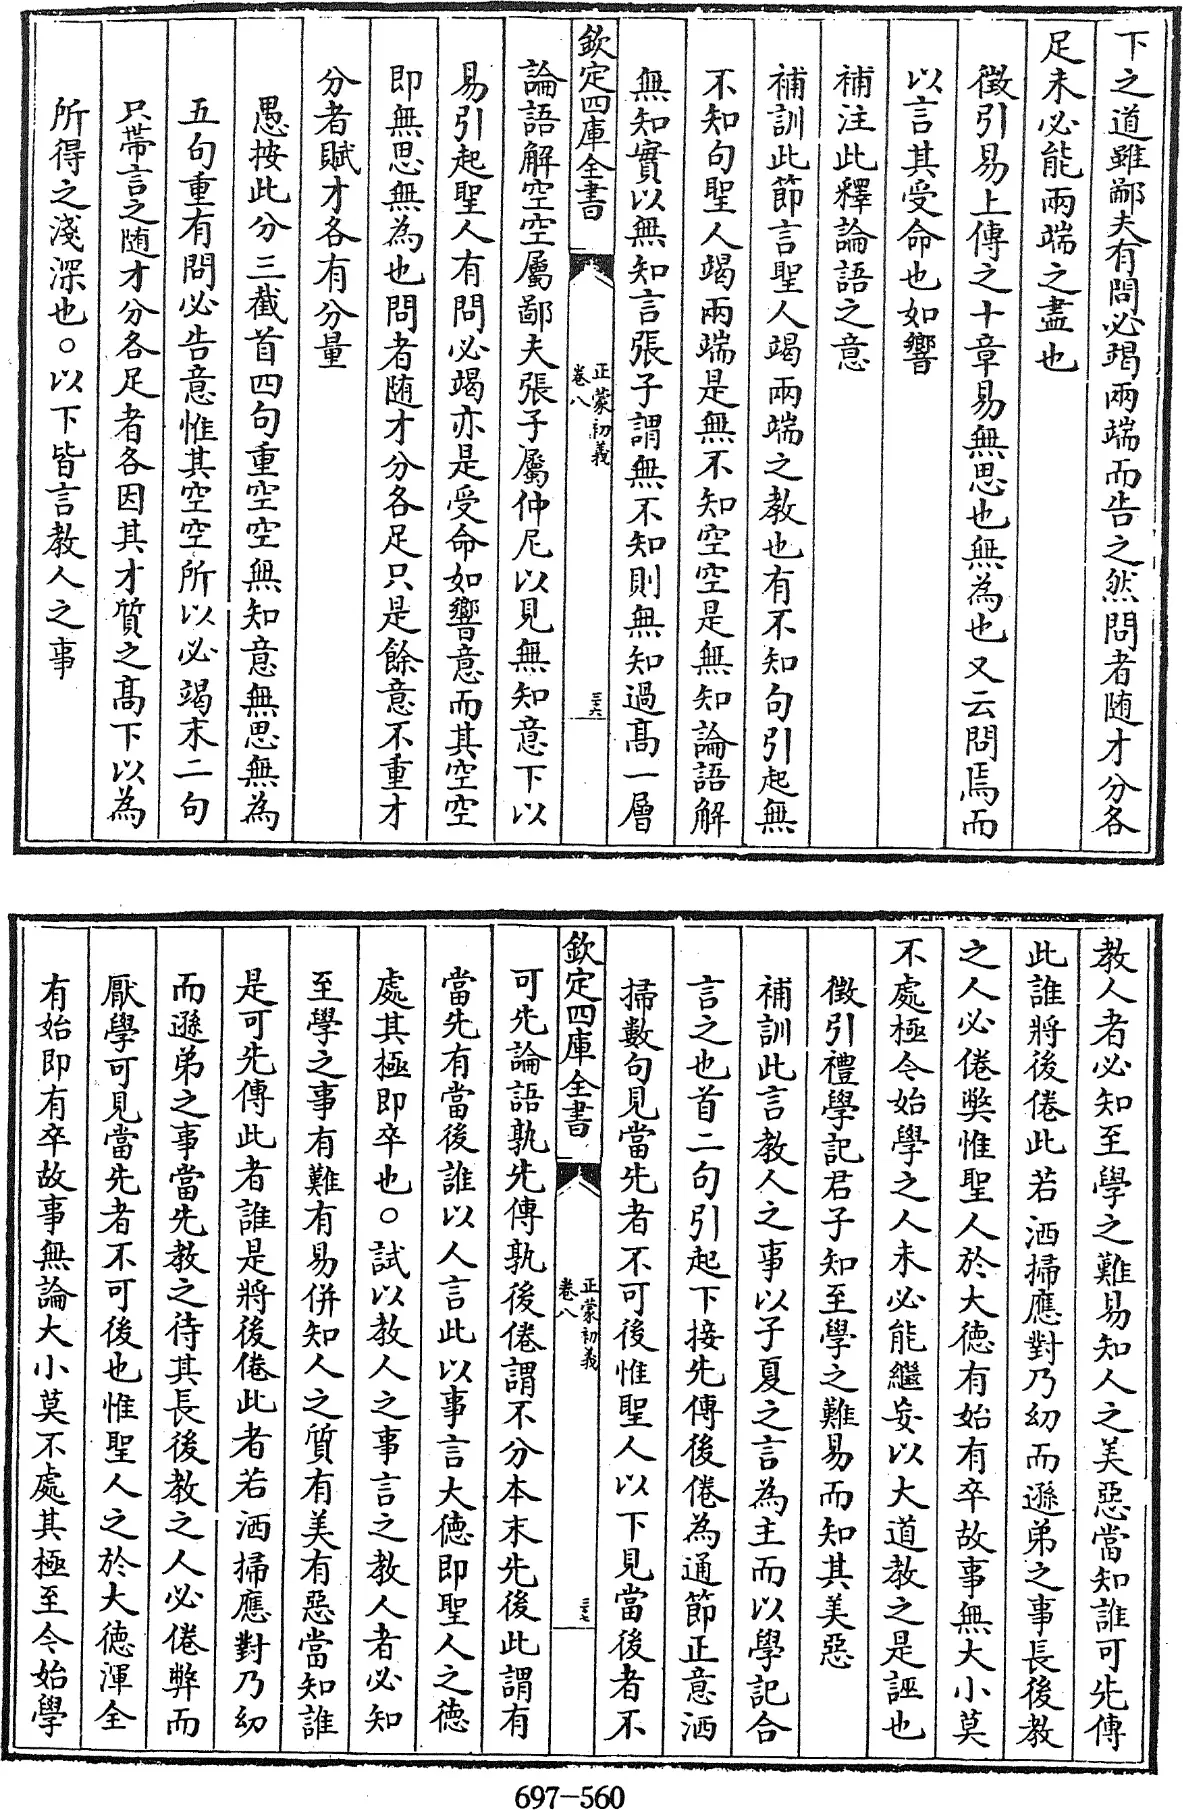 下之道雖鄙夫有問必竭兩端而告之然問者随才分各
足未必能兩端之盡也
徵引易上傳之十章易無思也無為也又云問焉而
以言其受命也如響
補注此釋論語之意
補訓此節言聖人竭兩端之教也有不知句引起無
不知句聖人竭兩端是無不知空空是無知論語解
無知實以無知言張子謂無不知則無知過髙一層
欽定四庫全書
正蒙初義
卷八
三十六
論語解空空屬鄙夫張子屬仲尼以見無知意下以
易引起聖人有問必竭亦是受命如響意而其空空
即無思無為也問者随才分各足只是餘意不重才
分者賦才各有分量
愚按此分三截首四句重空空無知意無思無為
五句重有問必告意惟其空空所以必竭末二句
只帶言之随才分各足者各因其才質之髙下以為
所得之淺深也○以下皆言教人之事
教人者必知至學之難易知人之美惡當知誰可先傳
此誰將後倦此若洒掃應對乃幼而遜弟之事長後教
之人必倦弊惟聖人於大徳有始有卒故事無大小莫
不處極今始學之人未必能繼妄以大道教之是誣也
徵引禮學記君子知至學之難易而知其美惡
補訓此言教人之事以子夏之言為主而以學記合
言之也首二句引起下接先傳後倦為通節正意洒
掃數句見當先者不可後惟聖人以下見當後者不
欽定四庫全書
正蒙初義
卷八
三十七
可先論語孰先傳孰後倦謂不分本末先後此謂有
當先有當後誰以人言此以事言大徳即聖人之徳
處其極即卒也○試以教人之事言之教人者必知
至學之事有難有易併知人之質有美有惡當知誰
是可先傳此者誰是將後倦此者若洒掃應對乃幼
而遜弟之事當先教之待其長後教之人必倦弊而
厭學可見當先者不可後也惟聖人之於大徳渾全
有始即有卒故事無論大小莫不處其極至今始學
697-560